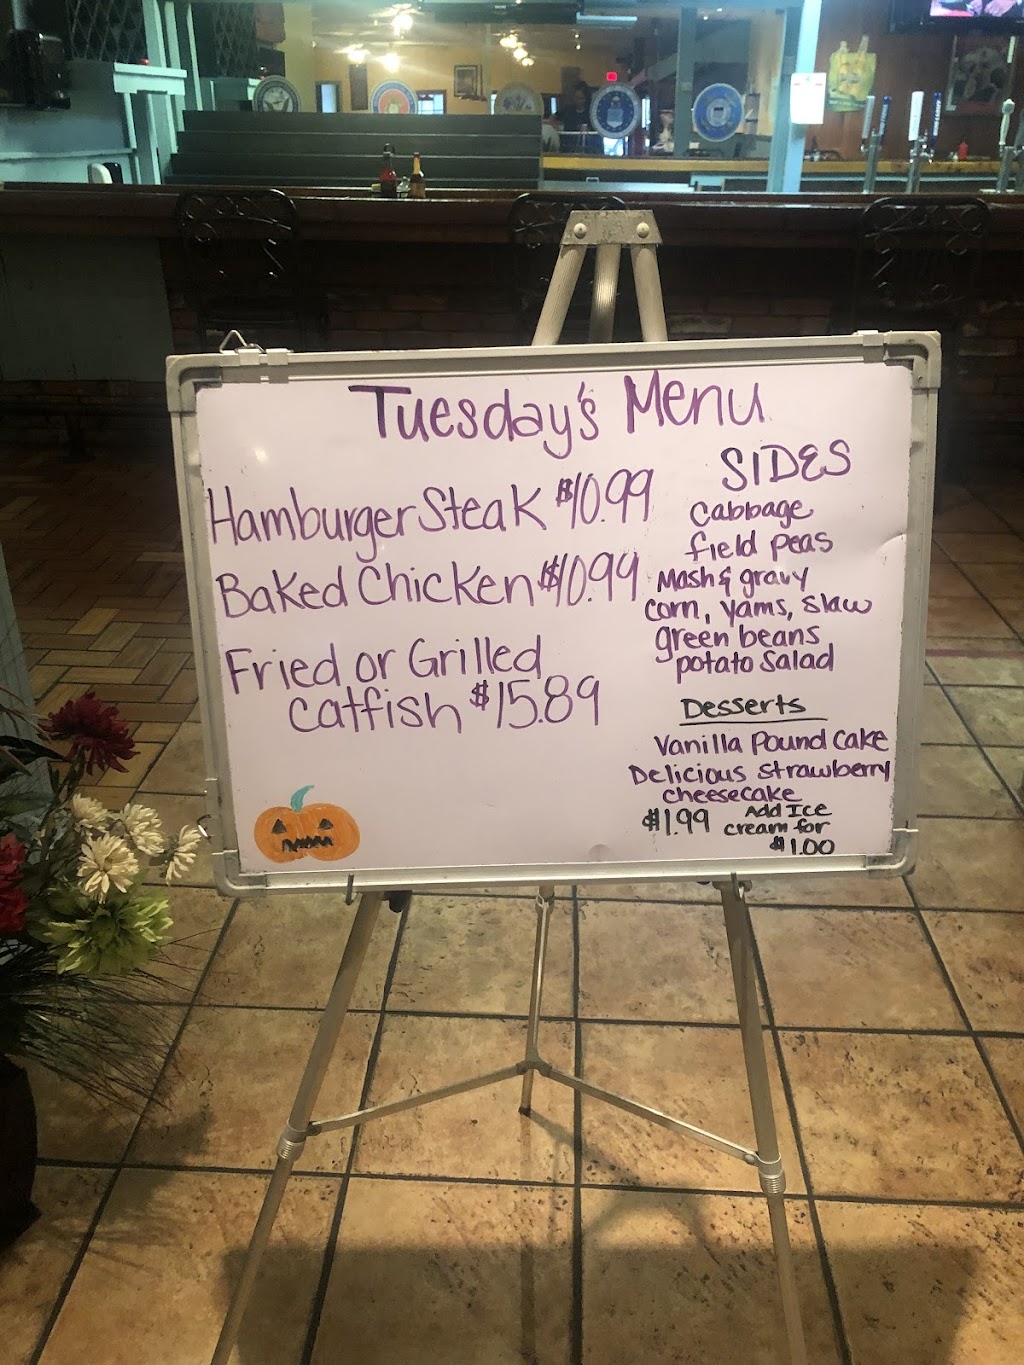 Tuesday's Menu
Hamburger Steak $10.99
Baked Chicken $10.99
Fried or Grilled
Catfish $15.89
SIDES
Cabbage
field peas
Mash & gravy
corn, yams, slaw
green beans
potato salad
Desserts
Vanilla Pound Cake
Delicious Strawberry
Cheesecake
$1.99 Add Ice
cream for
$1.00